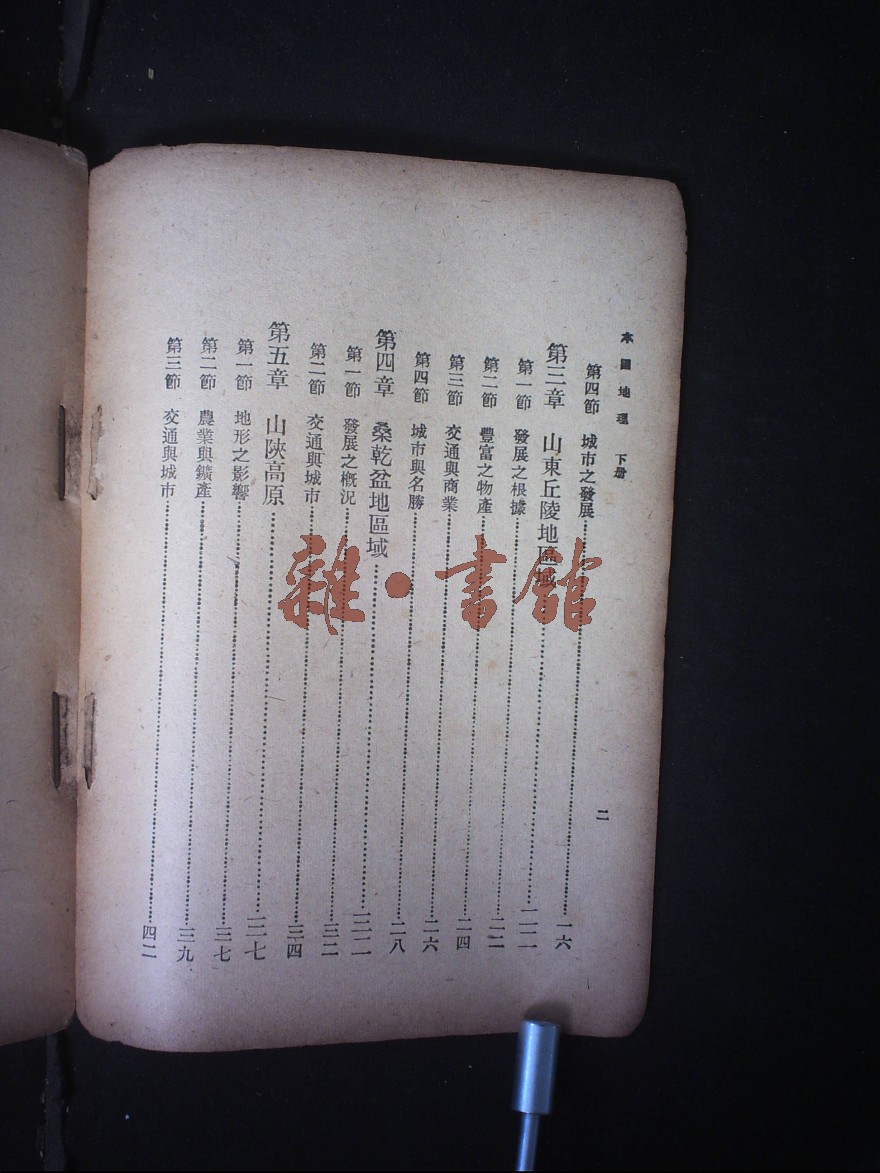 本國地理 下册
二
第四節 城市之發展……一六
第三章 山東丘陵地區域……二二
第一節 發展之根據……二二
第二節 豐富之物產……二四
第三節 交通與商業……二六
第四節 城市與名勝……二八
第四章 桑乾盆地區域……三二
第一節 發展之概況……三二
第二節 交通與城市……三四
第五章 山陝高原……三七
第一節 地形之影響……三七
第二節 農業與鑛產……三九
第三節 交通與城市……四二
雜·書館